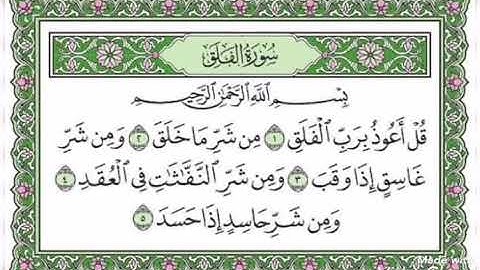 سُورَةُ الفَلَقِ
بِسْمِ اللَّهِ الرَّحْمَٰنِ الرَّحِيمِ
قُلْ أَعُوذُ بِرَبِّ الْفَلَقِ ١ مِن شَرِّ مَا خَلَقَ ٢ وَمِن شَرِّ
غَاسِقٍ إِذَا وَقَبَ ٣ وَمِن شَرِّ النَّفَّاثَاتِ فِي الْعُقَدِ ٤
وَمِن شَرِّ حَاسِدٍ إِذَا حَسَدَ ٥
Made wit